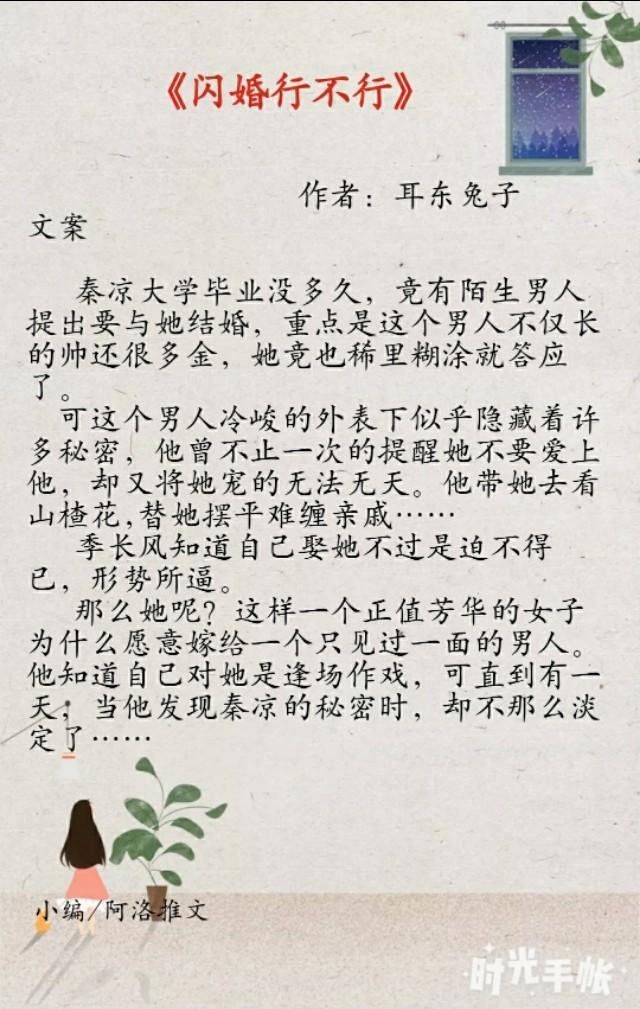 《闪婚行不行》
作者：耳东兔子
文案
秦凉大学毕业没多久，竟有陌生男人
提出要与她结婚，重点是这个男人不仅长
的帅还很多金，她竟也稀里糊涂就答应
了。
可这个男人冷峻的外表下似乎隐藏着许
多秘密，他曾不止一次的提醒她不要爱上
他，却又将她宠的无法无天。他带她去看
山楂花,替她摆平难缠亲戚……
季长风知道自己娶她不过是迫不得
已，形势所逼。
那么她呢？这样一个正值芳华的女子
为什么愿意嫁给一个只见过一面的男人。
他知道自己对她是逢场作戏，可直到有一
天，当他发现秦凉的秘密时，却不那么淡
定了……
小编/阿洛推文
时光手帐